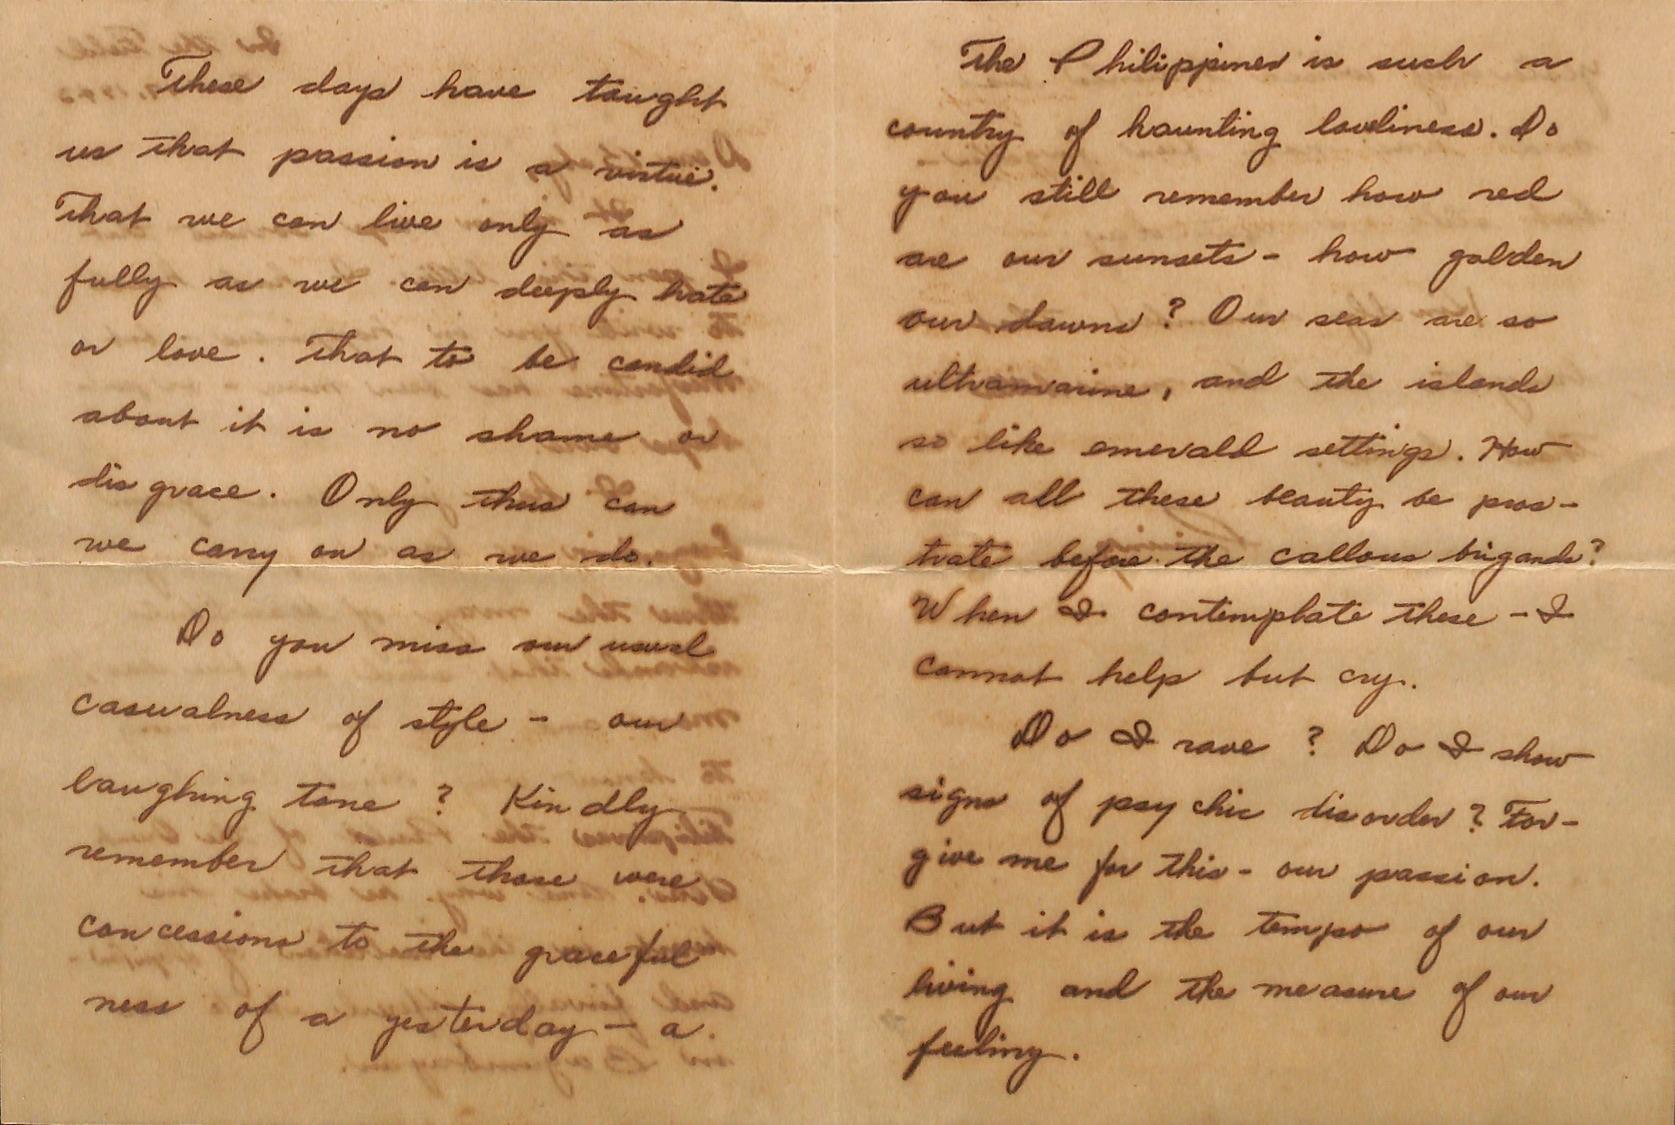 These days have taught
us that passion is a virtue.
That we can live only as
fully as we can deeply hate
or love. That to be candid
about it is no shame or
disgrace. Only thus can
we carry on as we do.
Do you miss our usual
casualness of style - our
laughing tone? Kindly
remember that those were
concessions to the graceful
ness of a yesterday - a.
The Philippines is such a
country of haunting loveliness. Do
you still remember how red
are our sunsets - how golden
our dawns? Our seas are so
ultramarine, and the islands
so like emerald settings. How
can all these beauty be pros-
trate before the callous brigands?
When I contemplate these - I
cannot help but cry.
Do I rave? Do I show
signs of psychic disorder? For-
give me for this - our passion.
But it is the tempo of our
living and the measure of our
feeling.